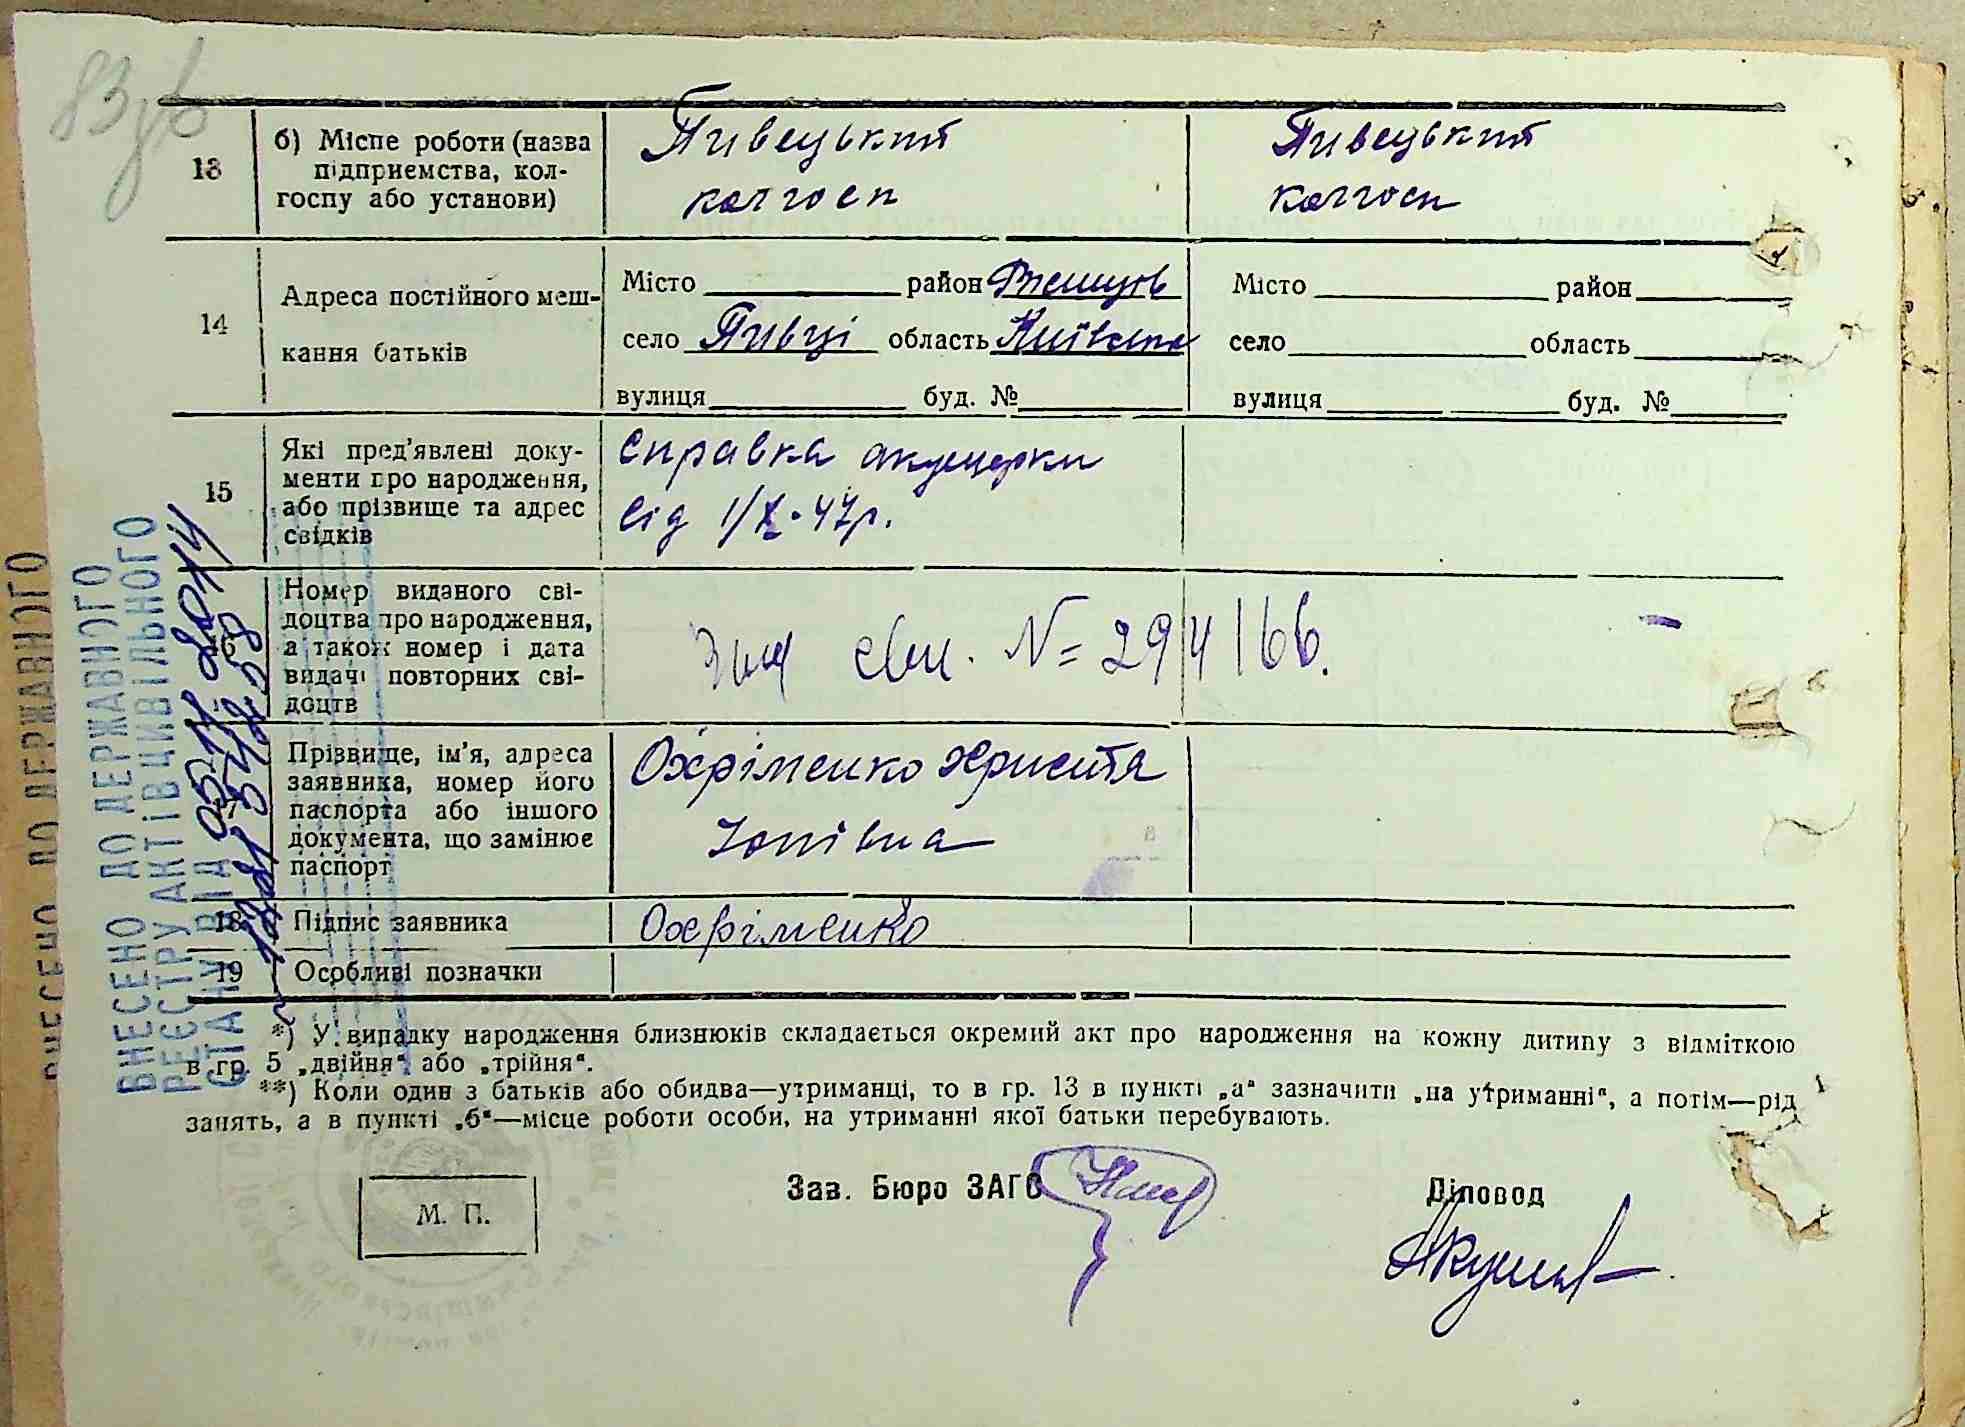 83зв
13 б) Місце роботи (назва підприємства, колгоспу або установи)
Пивецький колгосп
Пивецький колгосп
14 Адреса постійного мешкання батьків
Місто район Ржищів
село Пивці область Київська
вулиця буд. №
Місто район
село область
вулиця буд. №
15 Які пред'явлені документи про народження, або прізвище та адрес свідків
Справка акушерки
від 1/X-47р.
16 Номер виданого свідоцтва про народження, а також номер і дата видачі повторних свідоцтв
свид. № 294166.
17 Прізвище, ім'я, адреса заявника, номер його паспорта або іншого документа, що замінює паспорт
Охріменко Христя
Юхівна
18 Підпис заявника
Охріменко
19 Особливі позначки
*) У випадку народження близнюків складається окремий акт про народження на кожну дитину з відміткою
в гр. 5 „двійня" або „трійня".
**) Коли один з батьків або обидва—утриманці, то в гр. 13 в пункті „а" зазначити „на утриманні", а потім—рід
занять, а в пункті „б"—місце роботи особи, на утриманні якої батьки перебувають.
М. П.
Зав. Бюро ЗАГС
Діловод
ВНЕСЕНО ДО ДЕРЖАВНОГО
РЕЄСТРУ АКТІВ ЦИВІЛЬНОГО
СТАНУ ВІД
ВНЕСЕНО ДО ДЕРЖАВНОГО